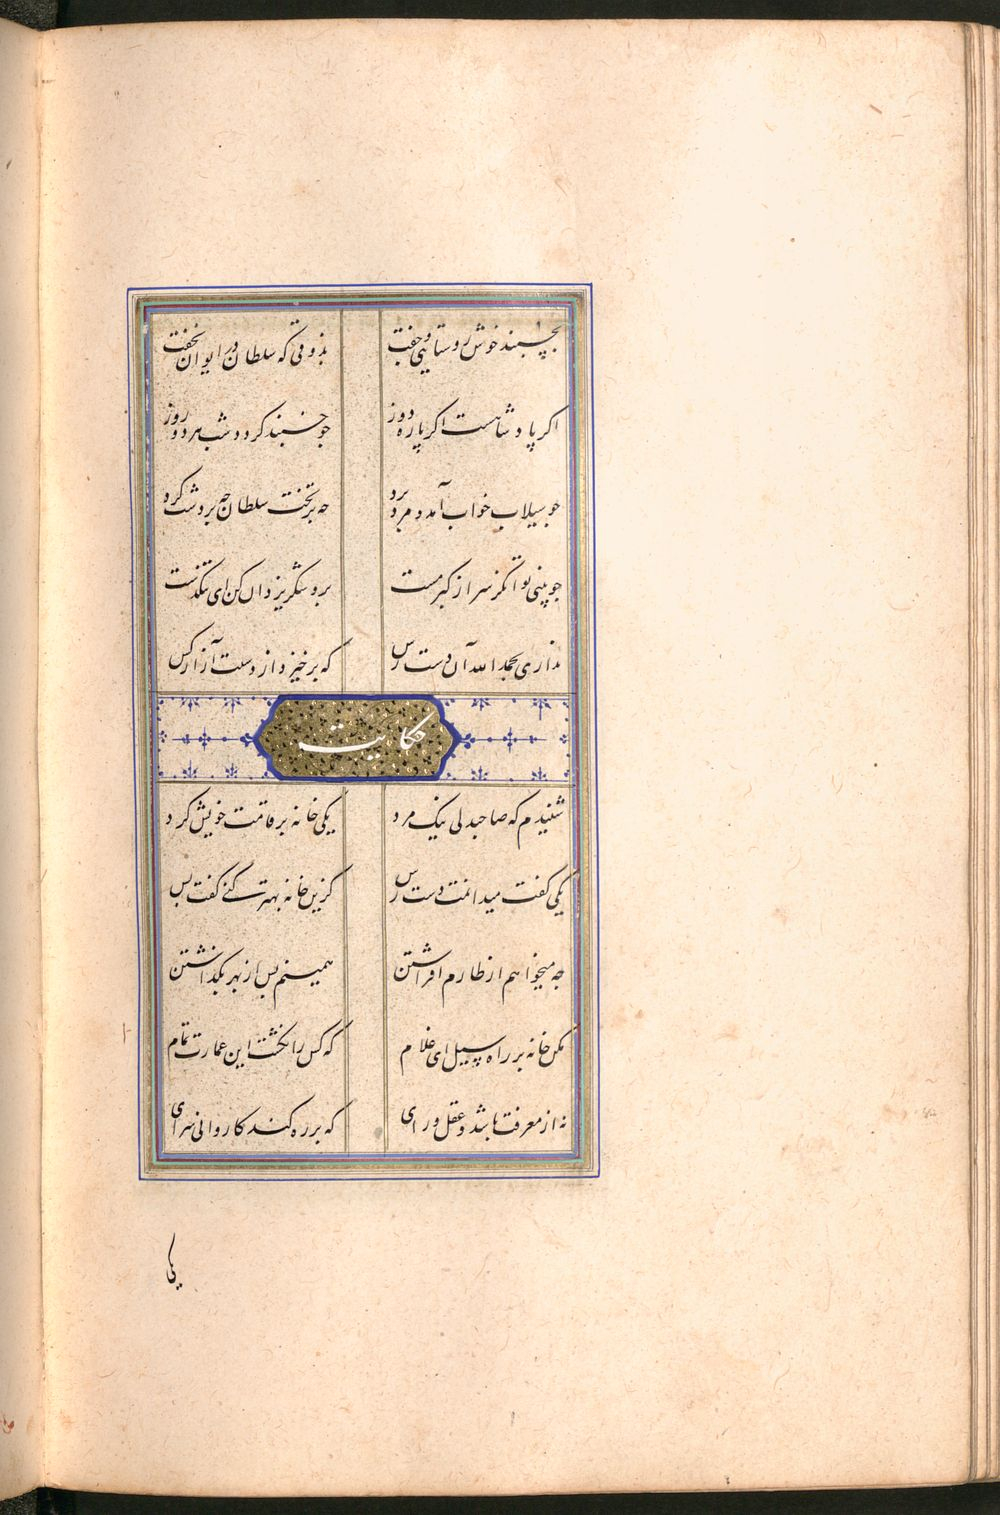 بخسبند خوش روستایی و جفت بذوقی که سلطان در ایوان نخفت
اکر پادشاهست اکر پاره دوز جو خسبند کردد شب هر دو روز
جو سیلاب خواب آمد و مرد برد جه بر تخت سلطان جه بر دشت کرد
جو بینی توانکر سر از کبر مست برو شکر یزدان کن ای تنکدست
نداری بحمد الله آن دست رس که برخیزد از دستت آزار کس
حکایت
شنیدم که صاحبدلی نیک مرد یکی خانه بر قامت خویش کرد
یکی کفت میدانمت دست رس کزین خانه بهتر کنی کفت بس
جه میخواهم از طارم افراشتن همینم بس از بهر بکذاشتن
مکن خانه بر راه سیل ای غلام که کس را نکشت این عمارت تمام
نه از معرفت باشد و عقل و رای که بر ره کند کاروانی سرای